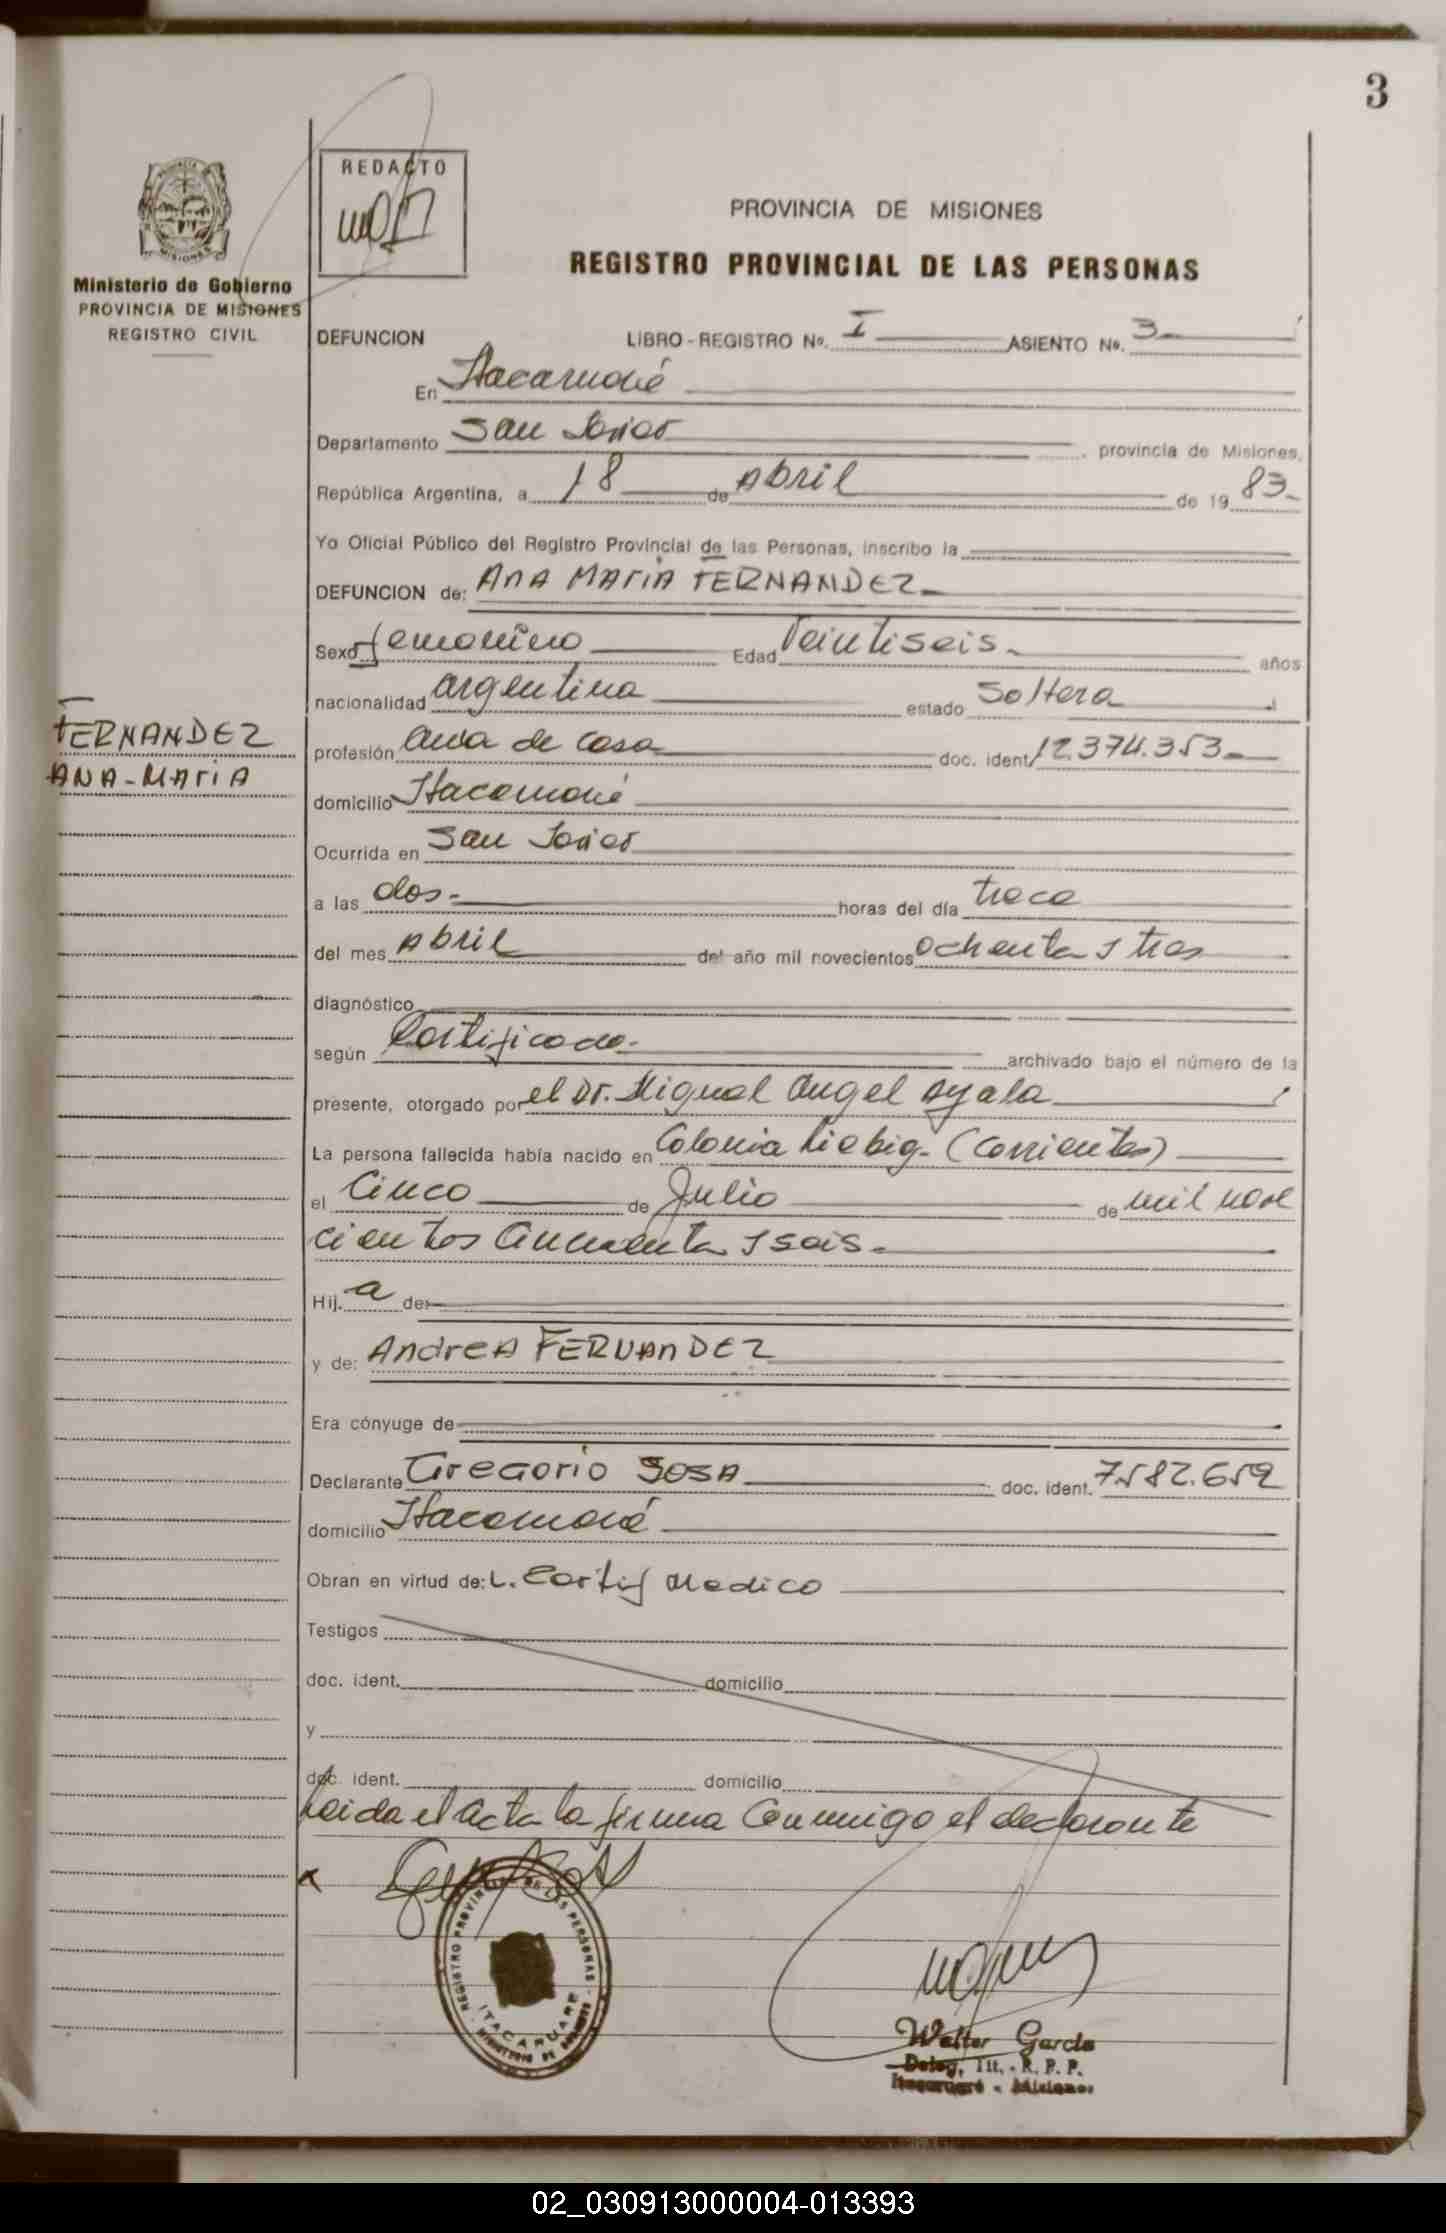 3
REDACTO
PROVINCIA DE MISIONES
REGISTRO PROVINCIAL DE LAS PERSONAS
Ministerio de Gobierno
PROVINCIA DE MISIONES
REGISTRO CIVIL
DEFUNCION LIBRO-REGISTRO No. I ASIENTO No. 3
En Itacaruaré
Departamento San Javier, provincia de Misiones,
República Argentina, a 18 de Abril de 19 83
Yo Oficial Público del Registro Provincial de las Personas, inscribo la
DEFUNCION de: ANA MARIA FERNANDEZ
Sexo femenino Edad Veintiseis años
nacionalidad argentina estado Soltera
FERNANDEZ
ANA-MARIA
profesión ama de casa doc. ident. 12.374.353
domicilio Itacaruaré
Ocurrida en San Javier
a las dos horas del día trece
del mes Abril del año mil novecientos ochenta y tres
diagnóstico
según Certificado archivado bajo el número de la
presente, otorgado por el Dr. Miguel Angel Ayala
La persona fallecida había nacido en Colonia Liebig (Corrientes)
el Cinco de Julio de mil nove
cientos cincuenta y seis
Hij. a de:
y de: Andrea FERNANDEZ
Era cónyuge de
Declarante Gregorio SOSA doc. ident. 7.582.659
domicilio Itacaruaré
Obran en virtud de: L. Certif Medico
Testigos
doc. ident. domicilio
y
doc. ident. domicilio
Leida el acta la firma conmigo el declarante
REGISTRO PROVINCIAL DE LAS PERSONAS
ITACARUARE
Walter Garcia
Deleg. Tit. - R. P. P.
Itacaruaré - Misiones
02_030913000004-013393